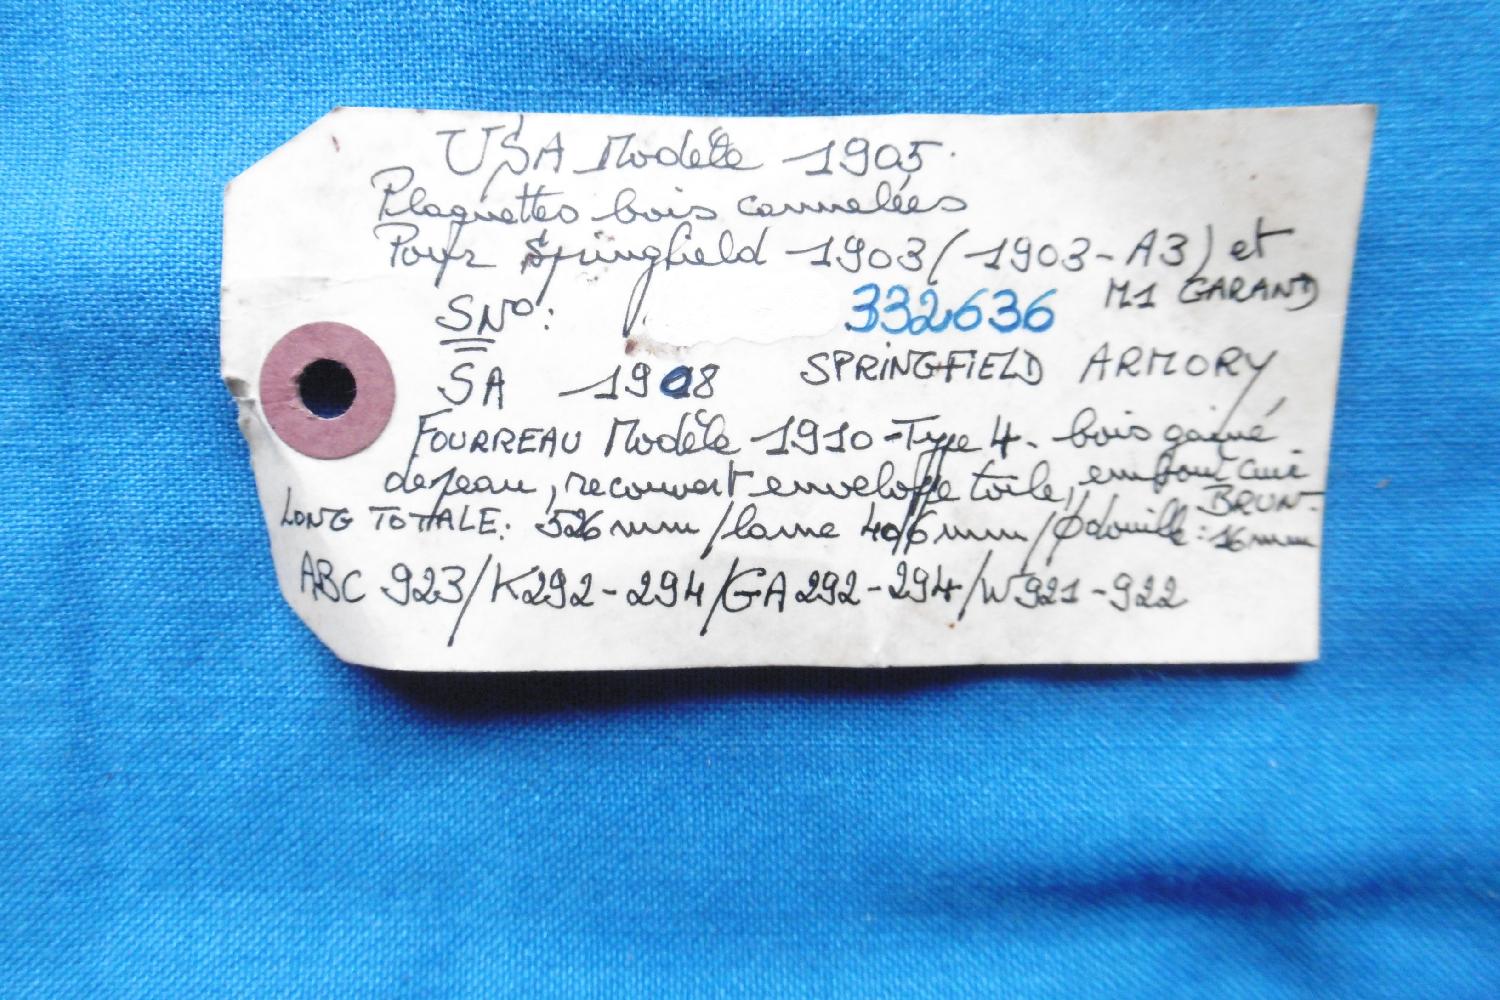 USA Modèle 1905.
Plaquettes bois cannelées
Pour Springfield 1903 (1903-A3) et
M1 GARAND
SNº: 332636
SA 1908 SPRINGFIELD ARMORY
FOURREAU Modèle 1910-Type 4. bois gainé
de peau, recouvert enveloppe toile, embout cuir
BRUN.
LONG TOTALE: 526 mm / lame 406 mm / φ douille: 16 mm
ABC 923/K292-294/GA292-294/W921-922